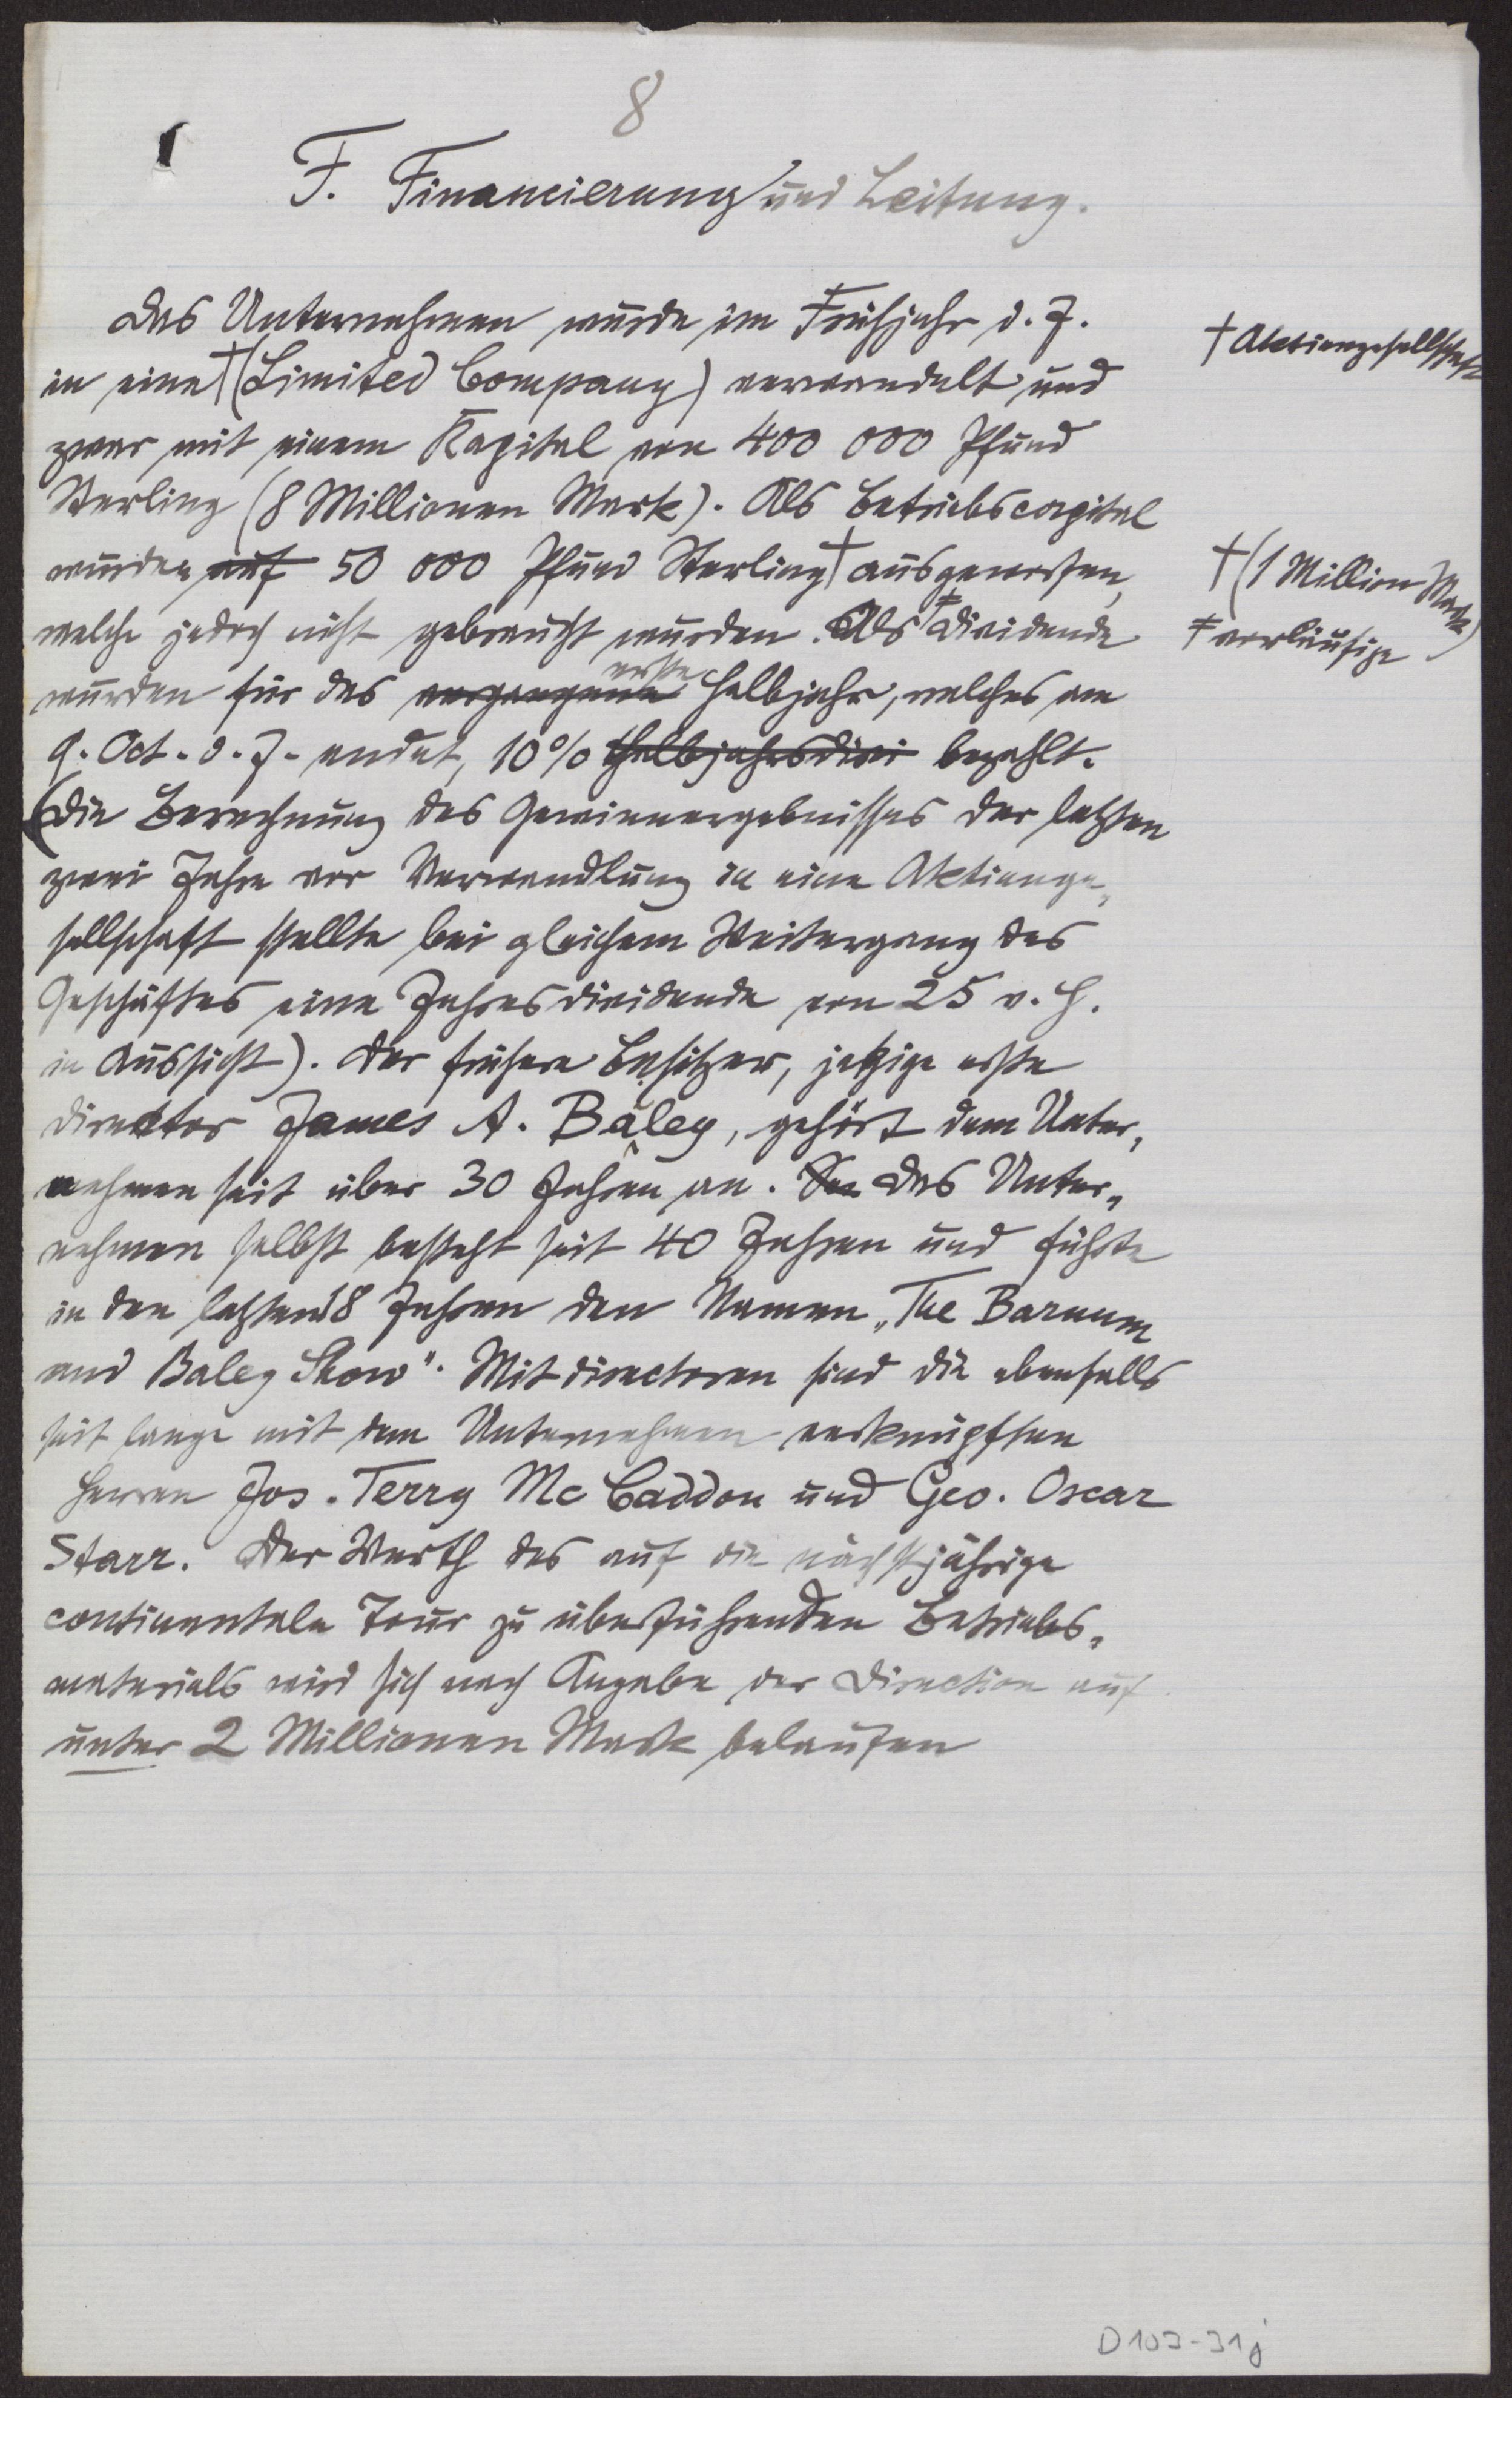 8
F. Financierung und Leitung.
Das Unternehmen wurde im Frühjahr d. J.
† Aktiengesellschaft
in eine † (Limited Company) verwandelt und
zwar mit einem Kapital von 400 000 Pfund
Sterling (8 Millionen Mark). Als Betriebscapital
wurden auf 50 000 Pfund Sterling † ausgeworfen,
† (1 Million Mark)
welche jedoch nicht gebraucht wurden. Als ‡ Dividende
‡ vorläufige
wurden für das vergangene erste Halbjahr, welches am
9. Oct. d. J. endet, 10% Halbjahrsdivi bezahlt.
(Die Berechnung des Gewinnergebnisses der letzten
zwei Jahre vor Verwandlung in eine Aktienge„
sellschaft stellte bei gleichem Weitergang des
Geschäftes eine Jahresdividende von 25 v. H.
in Aussicht). Der frühere Besitzer, jetzige erste
Director James A. Baley, gehört dem Unter„
nehmen seit über 30 Jahren an. Das Unter„
nehmen selbst besteht seit 40 Jahren und führte
in den letzten 18 Jahren den Namen „The Barnum
and Baley Show". Mitdirectoren sind die ebenfalls
seit lange mit dem Unternehmen verknüpften
Herren Jos. Terry Mc Caddon und Geo. Oscar
Starr. Der Werth des auf die nächstjährige
continentale Tour zu überführenden Betriebs„
materials wird sich nach Angabe der Direction auf
unter 2 Millionen Mark belaufen
D103-31j